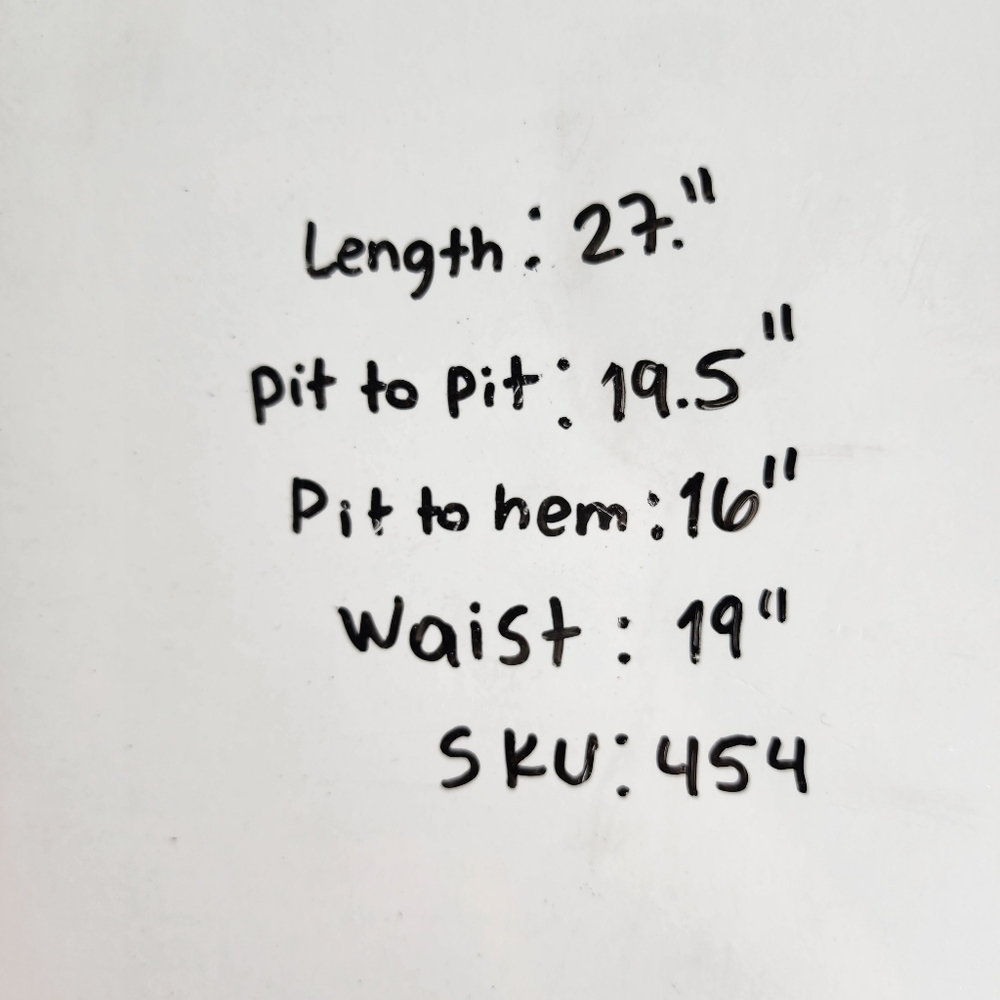 Length: 27."
pit to pit: 19.5"
Pit to hem: 16"
Waist: 19"
SKU: 454